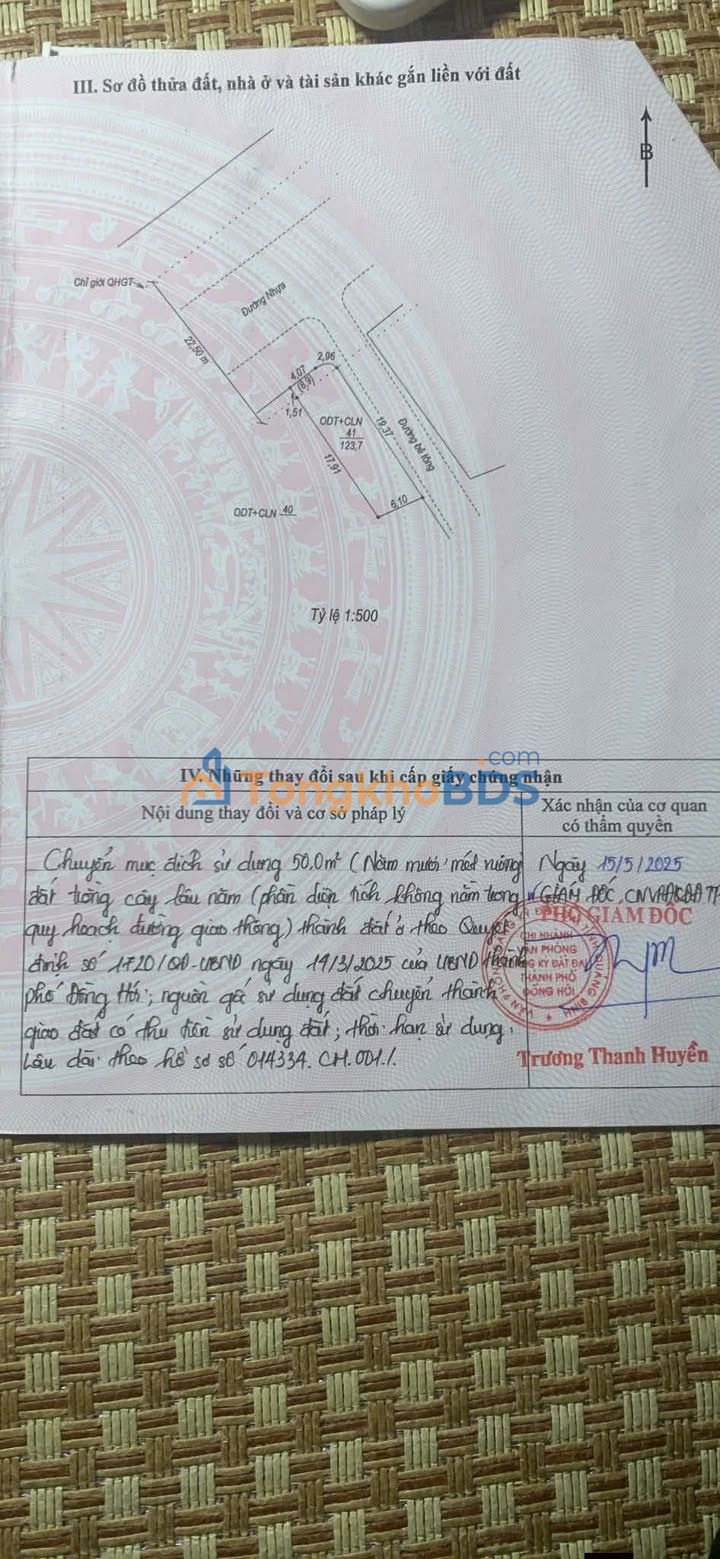 III. Sơ đồ thửa đất, nhà ở và tài sản khác gắn liền với đất
B
Chỉ giới QHGT
Đường Nhựa
22,50 m
2,96
4,07
(8,9)
1,51
ODT+CLN
41
123,7
19,37
Đường bê tông
17,91
6,10
ODT+CLN 40
Tỷ lệ 1:500
TổngkhoBDS.com
IV. Những thay đổi sau khi cấp giấy chứng nhận
Nội dung thay đổi và cơ sở pháp lý
Xác nhận của cơ quan
có thẩm quyền
Chuyển mục đích sử dụng 50.0m² (Năm mươi mét vuông)
đất trồng cây lâu năm (phần diện tích không nằm trong
quy hoạch đường giao thông) thành đất ở theo Quyết
định số 1720/QĐ-UBND ngày 14/3/2025 của UBND thành
phố Đồng Hới; nguồn gốc sử dụng đất chuyển thành
giao đất có thu tiền sử dụng đất; thời hạn sử dụng:
Lâu dài theo hồ sơ số 014334.CH.001./.
Ngày 15/5/2025
GIÁM ĐỐC CNVPĐKĐĐ TP
PHÓ GIÁM ĐỐC
CHI NHÁNH
VĂN PHÒNG
ĐĂNG KÝ ĐẤT ĐAI
THÀNH PHỐ
ĐỒNG HỚI
Trương Thanh Huyền